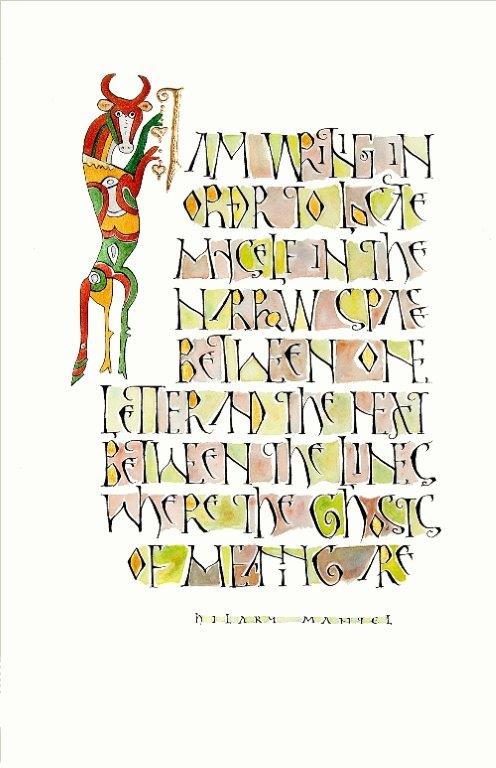 I
AM WRITING IN
ORDER TO LOCATE
MYSELF IN THE
NARROW SPACE
BETWEEN ONE
LETTER AND THE NEXT
BETWEEN THE LINES
WHERE THE GHOSTS
OF MEANING ARE
HILARY MANTEL